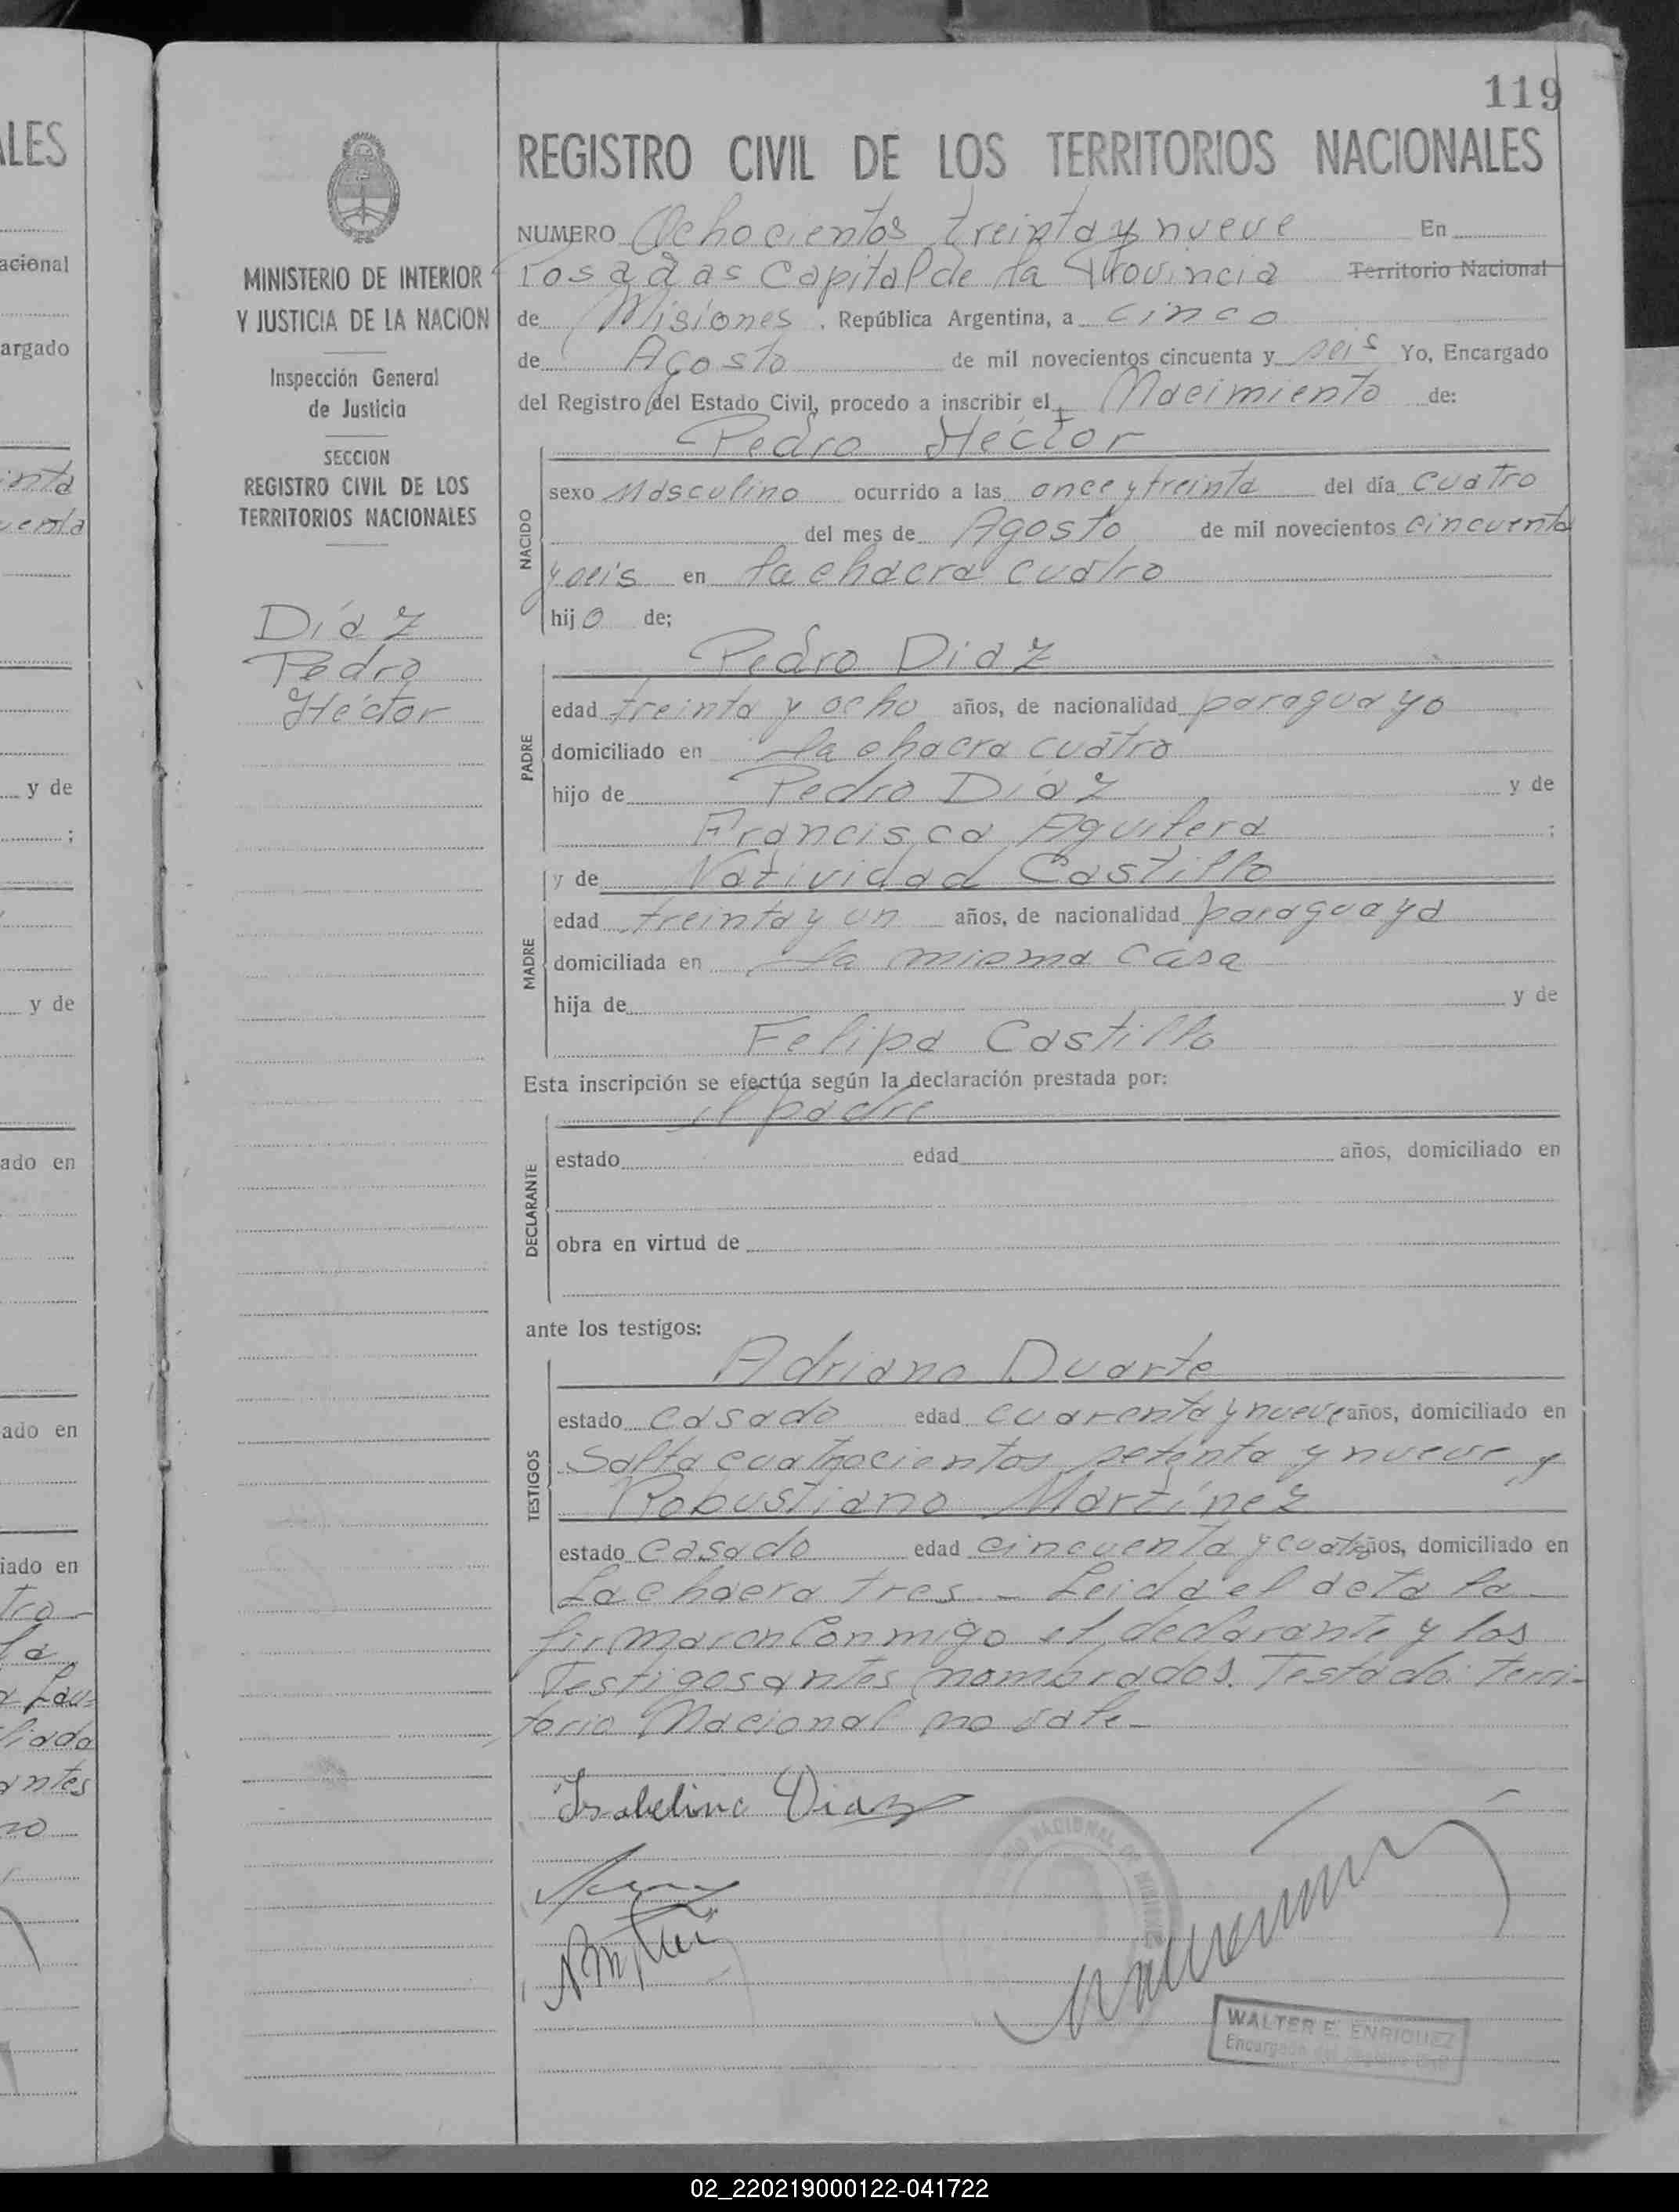 119
REGISTRO CIVIL DE LOS TERRITORIOS NACIONALES
MINISTERIO DE INTERIOR
Y JUSTICIA DE LA NACION
Inspección General
de Justicia
SECCION
REGISTRO CIVIL DE LOS
TERRITORIOS NACIONALES
Díaz
Pedro
Héctor
NUMERO Ochocientos treinta y nueve En
Posadas Capital de la Provincia Territorio Nacional
de Misiones . República Argentina, a cinco
de Agosto de mil novecientos cincuenta y seis Yo, Encargado
del Registro del Estado Civil, procedo a inscribir el Nacimiento de:
Pedro Héctor
NACIDO
sexo Masculino ocurrido a las once y treinta del día cuatro
del mes de Agosto de mil novecientos cincuenta
y seis en la chacra cuatro
hijo de;
Pedro Diaz
PADRE
edad treinta y ocho años, de nacionalidad paraguayo
domiciliado en la chacra cuatro
hijo de Pedro Díaz y de
Francisca Aguilera ;
y de Natividad Castillo
MADRE
edad treinta y un años, de nacionalidad paraguaya
domiciliada en la misma casa
hija de y de
Felipa Castillo
Esta inscripción se efectúa según la declaración prestada por:
el padre
DECLARANTE
estado edad años, domiciliado en
obra en virtud de
ante los testigos:
Adriano Duarte
TESTIGOS
estado casado edad cuarenta y nueve años, domiciliado en
Salta cuatrocientos setenta y nueve y
Robustiano Martínez
estado casado edad cincuenta y cuatro años, domiciliado en
La chacra tres – Leida el acta la
firmaron conmigo el declarante y los
Testigos antes nombrados. Testado: Terri-
torio Nacional no vale –
Isabelino Diaz
WALTER E. ENRIQUEZ
Encargado del Registro Civil
02_220219000122-041722